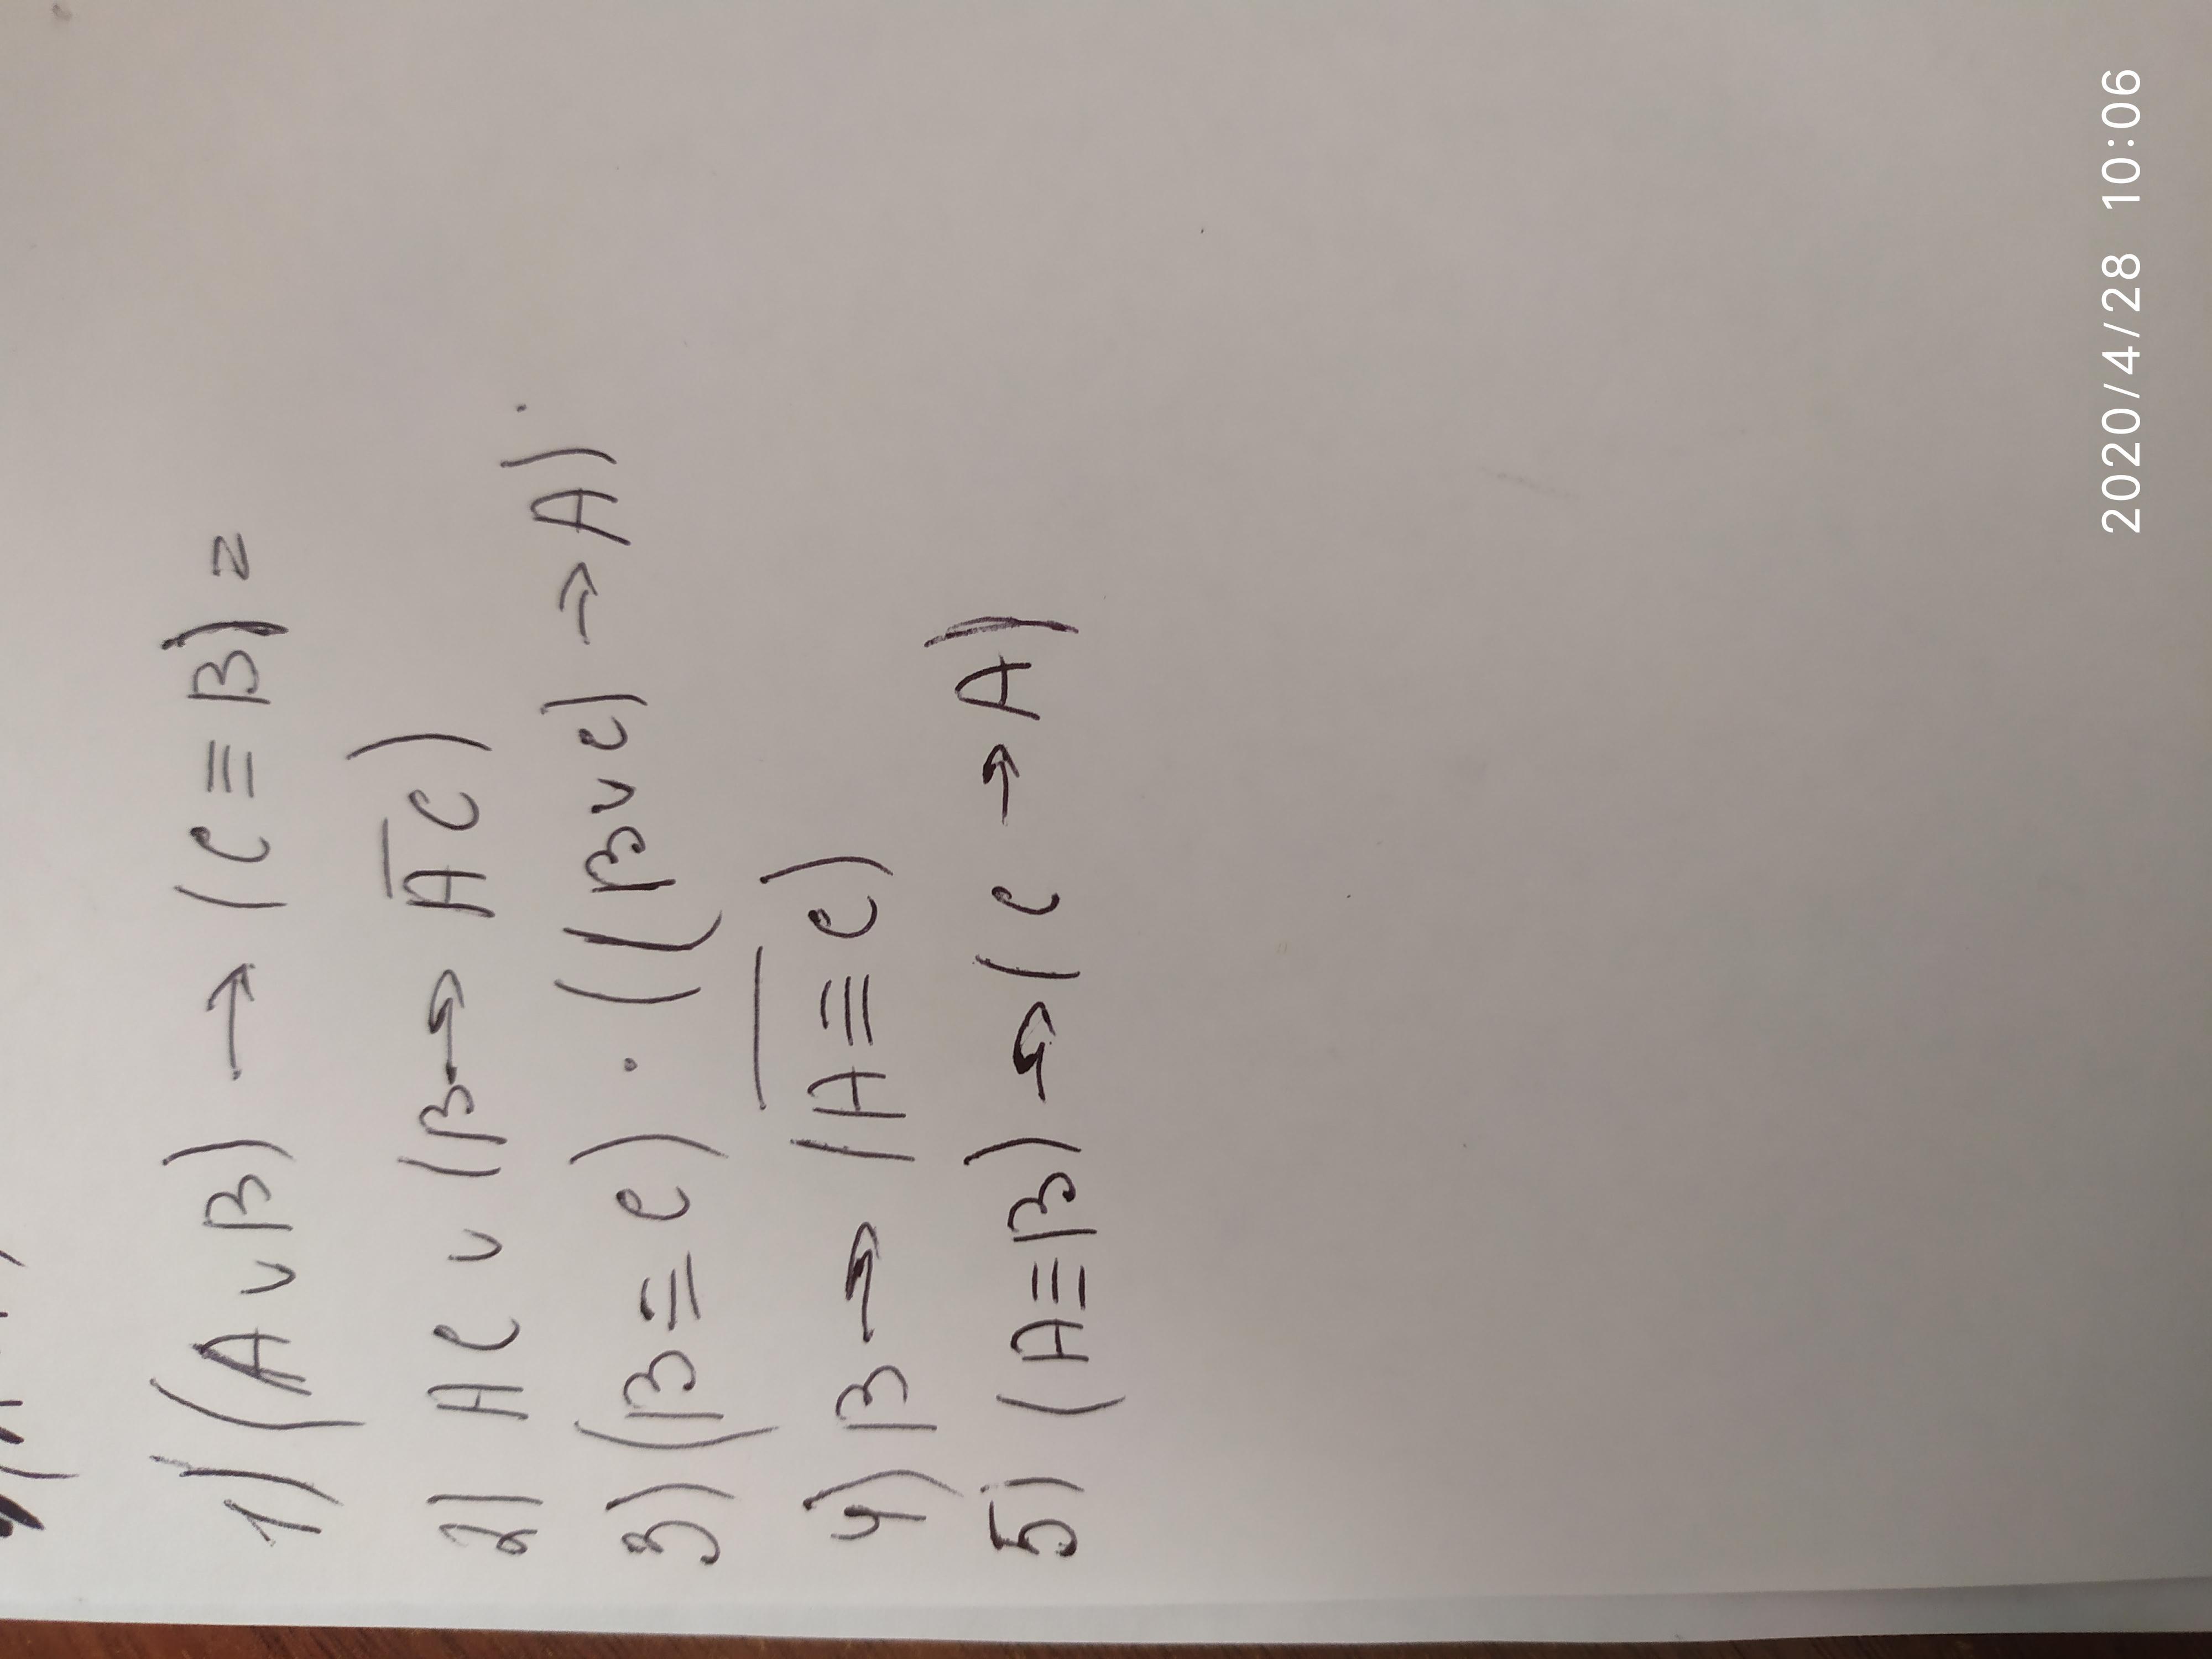 1) (A v B) → (C ≡ B) =
2) AC v (B → A̅C)
3) (B ≡ C) · ((B v C) → A)
4) B → (A̅ ̅≡̅ C)
5) (A ≡ B) → (C → A)
2020/4/28 10:06